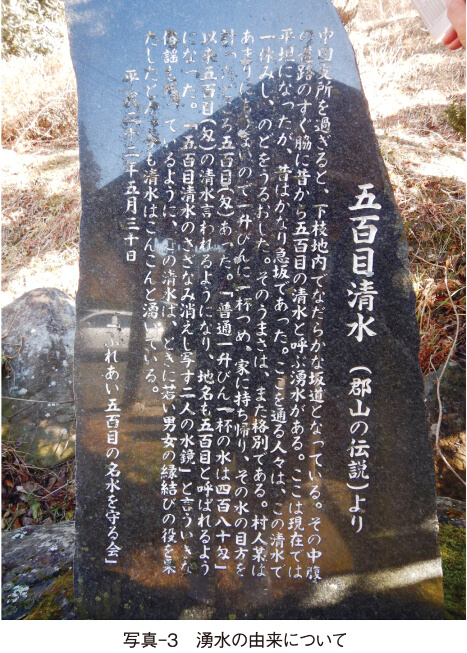 五百目清水 (郡山の伝説)より
中田支所を過ぎると、下枝地内でなだらかな坂道となっている。その中腹
の道路のすぐ脇に昔から五百目の清水と呼ぶ湧水がある。ここは現在では
平坦になったが、昔はかなり急坂であった。ここを通る人々は、この清水で
一休みし、のどをうるおした。そのうまさは、また格別である。村人某は
あまりにもうまいので一升びんに一杯つめ、家に持ち帰り、その水の目方を
計ったところ五百目(匁)あった。「普通一升びん一杯の水は四百八十匁」
以来五百目(匁)の清水言われるようになり、地名も五百目と呼ばれるよう
になった。「五百目清水のさざなみ消えし写す二人の水鏡」と言ういきな
俗謡も残っているように、この清水は、ときに若い男女の縁結びの役を果
たしたどんな時も清水はこんこんと湧いている。
平成二十二年五月三十日
「ふれあい五百目の名水を守る会」
写真-3 湧水の由来について